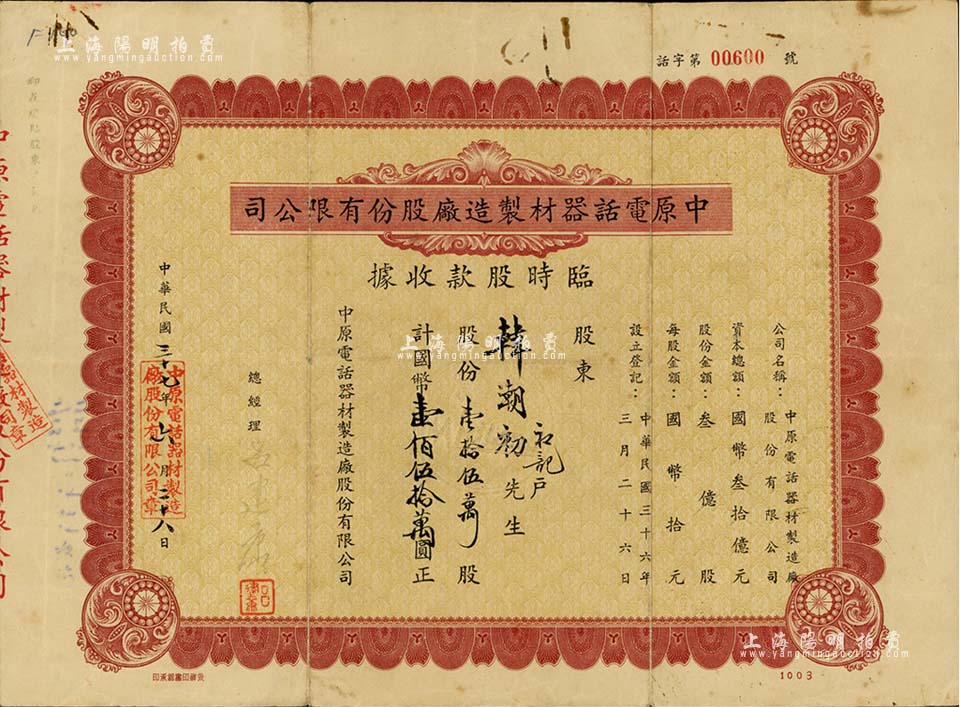 上海陽明拍賣
www.yangmingauction.com
話字第 00600 號
中原電話器材製造廠股份有限公司
臨時股款收據
公司名稱：中原電話器材製造廠股份有限公司
資本總額：國幣叁拾億元
股份金額：叁億股
每股金額：國幣拾元
設立登記：中華民國三十六年三月二十六日
股東
韓潮初先生
初記戶
股份壹拾伍萬股
計國幣壹佰伍拾萬圓正
中原電話器材製造廠股份有限公司
總經理
中華民國三十七年六月二十八日
中原電話器材製造廠股份有限公司章
上海陽明拍賣
www.yangmingauction.com
上海陽明拍賣
www.yangmingauction.com
1003